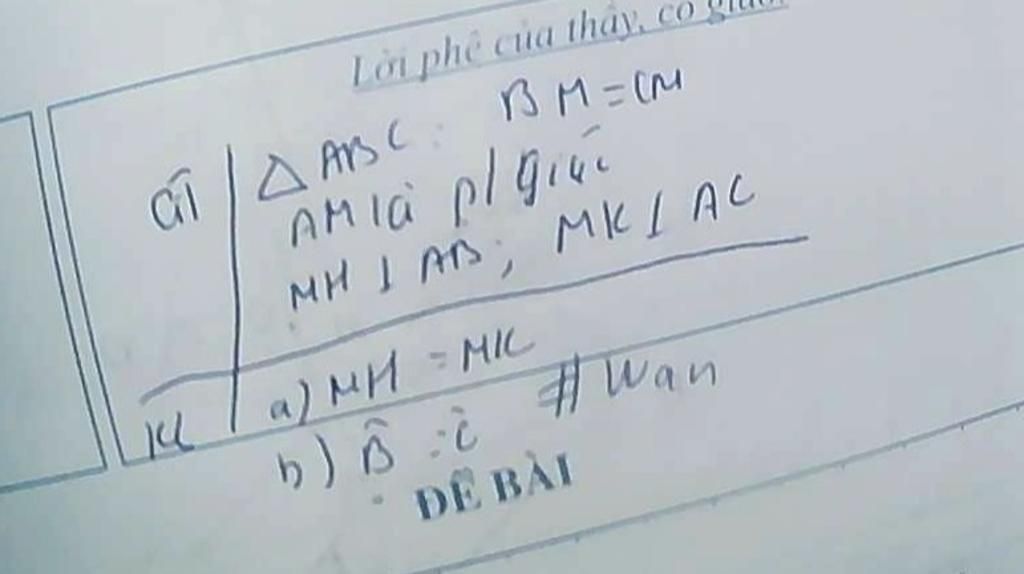 Lời phê của thầy, cô giáo
Gt
△ ABC : BM = CM
AM là p/giác
MH ⊥ AB ; MK ⊥ AC
KL
a) MH = MK
b) B̂ = Ĉ # Wan
ĐỀ BÀI